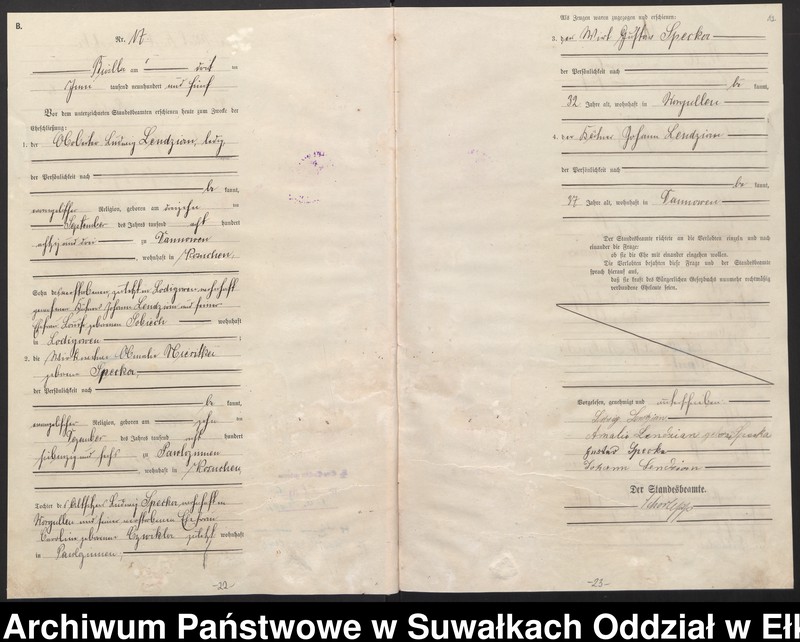 B.
Nr. 17
Bialla am
Juni tausend neunhundert und fünf
Vor dem unterzeichneten Standesbeamten erschienen heute zum Zwecke der
Eheschließung:
1. der Ludwig Lendzian, ledig
der Persönlichkeit nach
be kannt,
evangelischer Religion, geboren am dreizehn ten
September des Jahres tausend acht hundert
achtzig und drei zu Dannowen
, wohnhaft in
Sohn des verstorbenen, zuletzt in Lodigowen wohnhaft
gewesenen Käthners Johann Lendzian und seiner
Ehefrau Louise geborenen Sobiech wohnhaft
in Lodigowen ;
2. die Amalie
geborene Specka,
der Persönlichkeit nach
be kannt,
evangelischer Religion, geboren am zehn ten
Dezember des Jahres tausend acht hundert
siebenzig und sechs zu Pawlozinnen
, wohnhaft in
Tochter des Altsitzers Ludwig Specka, wohnhaft in
Worgullen und seiner verstorbenen Ehefrau
Caroline geborenen zuletzt wohnhaft
in Pawlozinnen
-22-
Als Zeugen waren zugezogen und erschienen:
3. der Wirt Gustav Specka
der Persönlichkeit nach
be kannt,
32 Jahre alt, wohnhaft in Worgullen
4. der Käthner Johann Lendzian
der Persönlichkeit nach
be kannt,
37 Jahre alt, wohnhaft in Dannowen
Der Standesbeamte richtete an die Verlobten einzeln und nach
einander die Frage:
ob sie die Ehe mit einander eingehen wollen.
Die Verlobten bejahten diese Frage und der Standesbeamte
sprach hierauf aus,
daß sie kraft des Bürgerlichen Gesetzbuchs nunmehr rechtmäßig
verbundene Eheleute seien.
Vorgelesen, genehmigt und unterschrieben
Amalie Lendzian geborene Specka
Gustav Specka
Johann Lendzian
Der Standesbeamte.
-23-
Archiwum Państwowe w Suwałkach Oddział w Eł